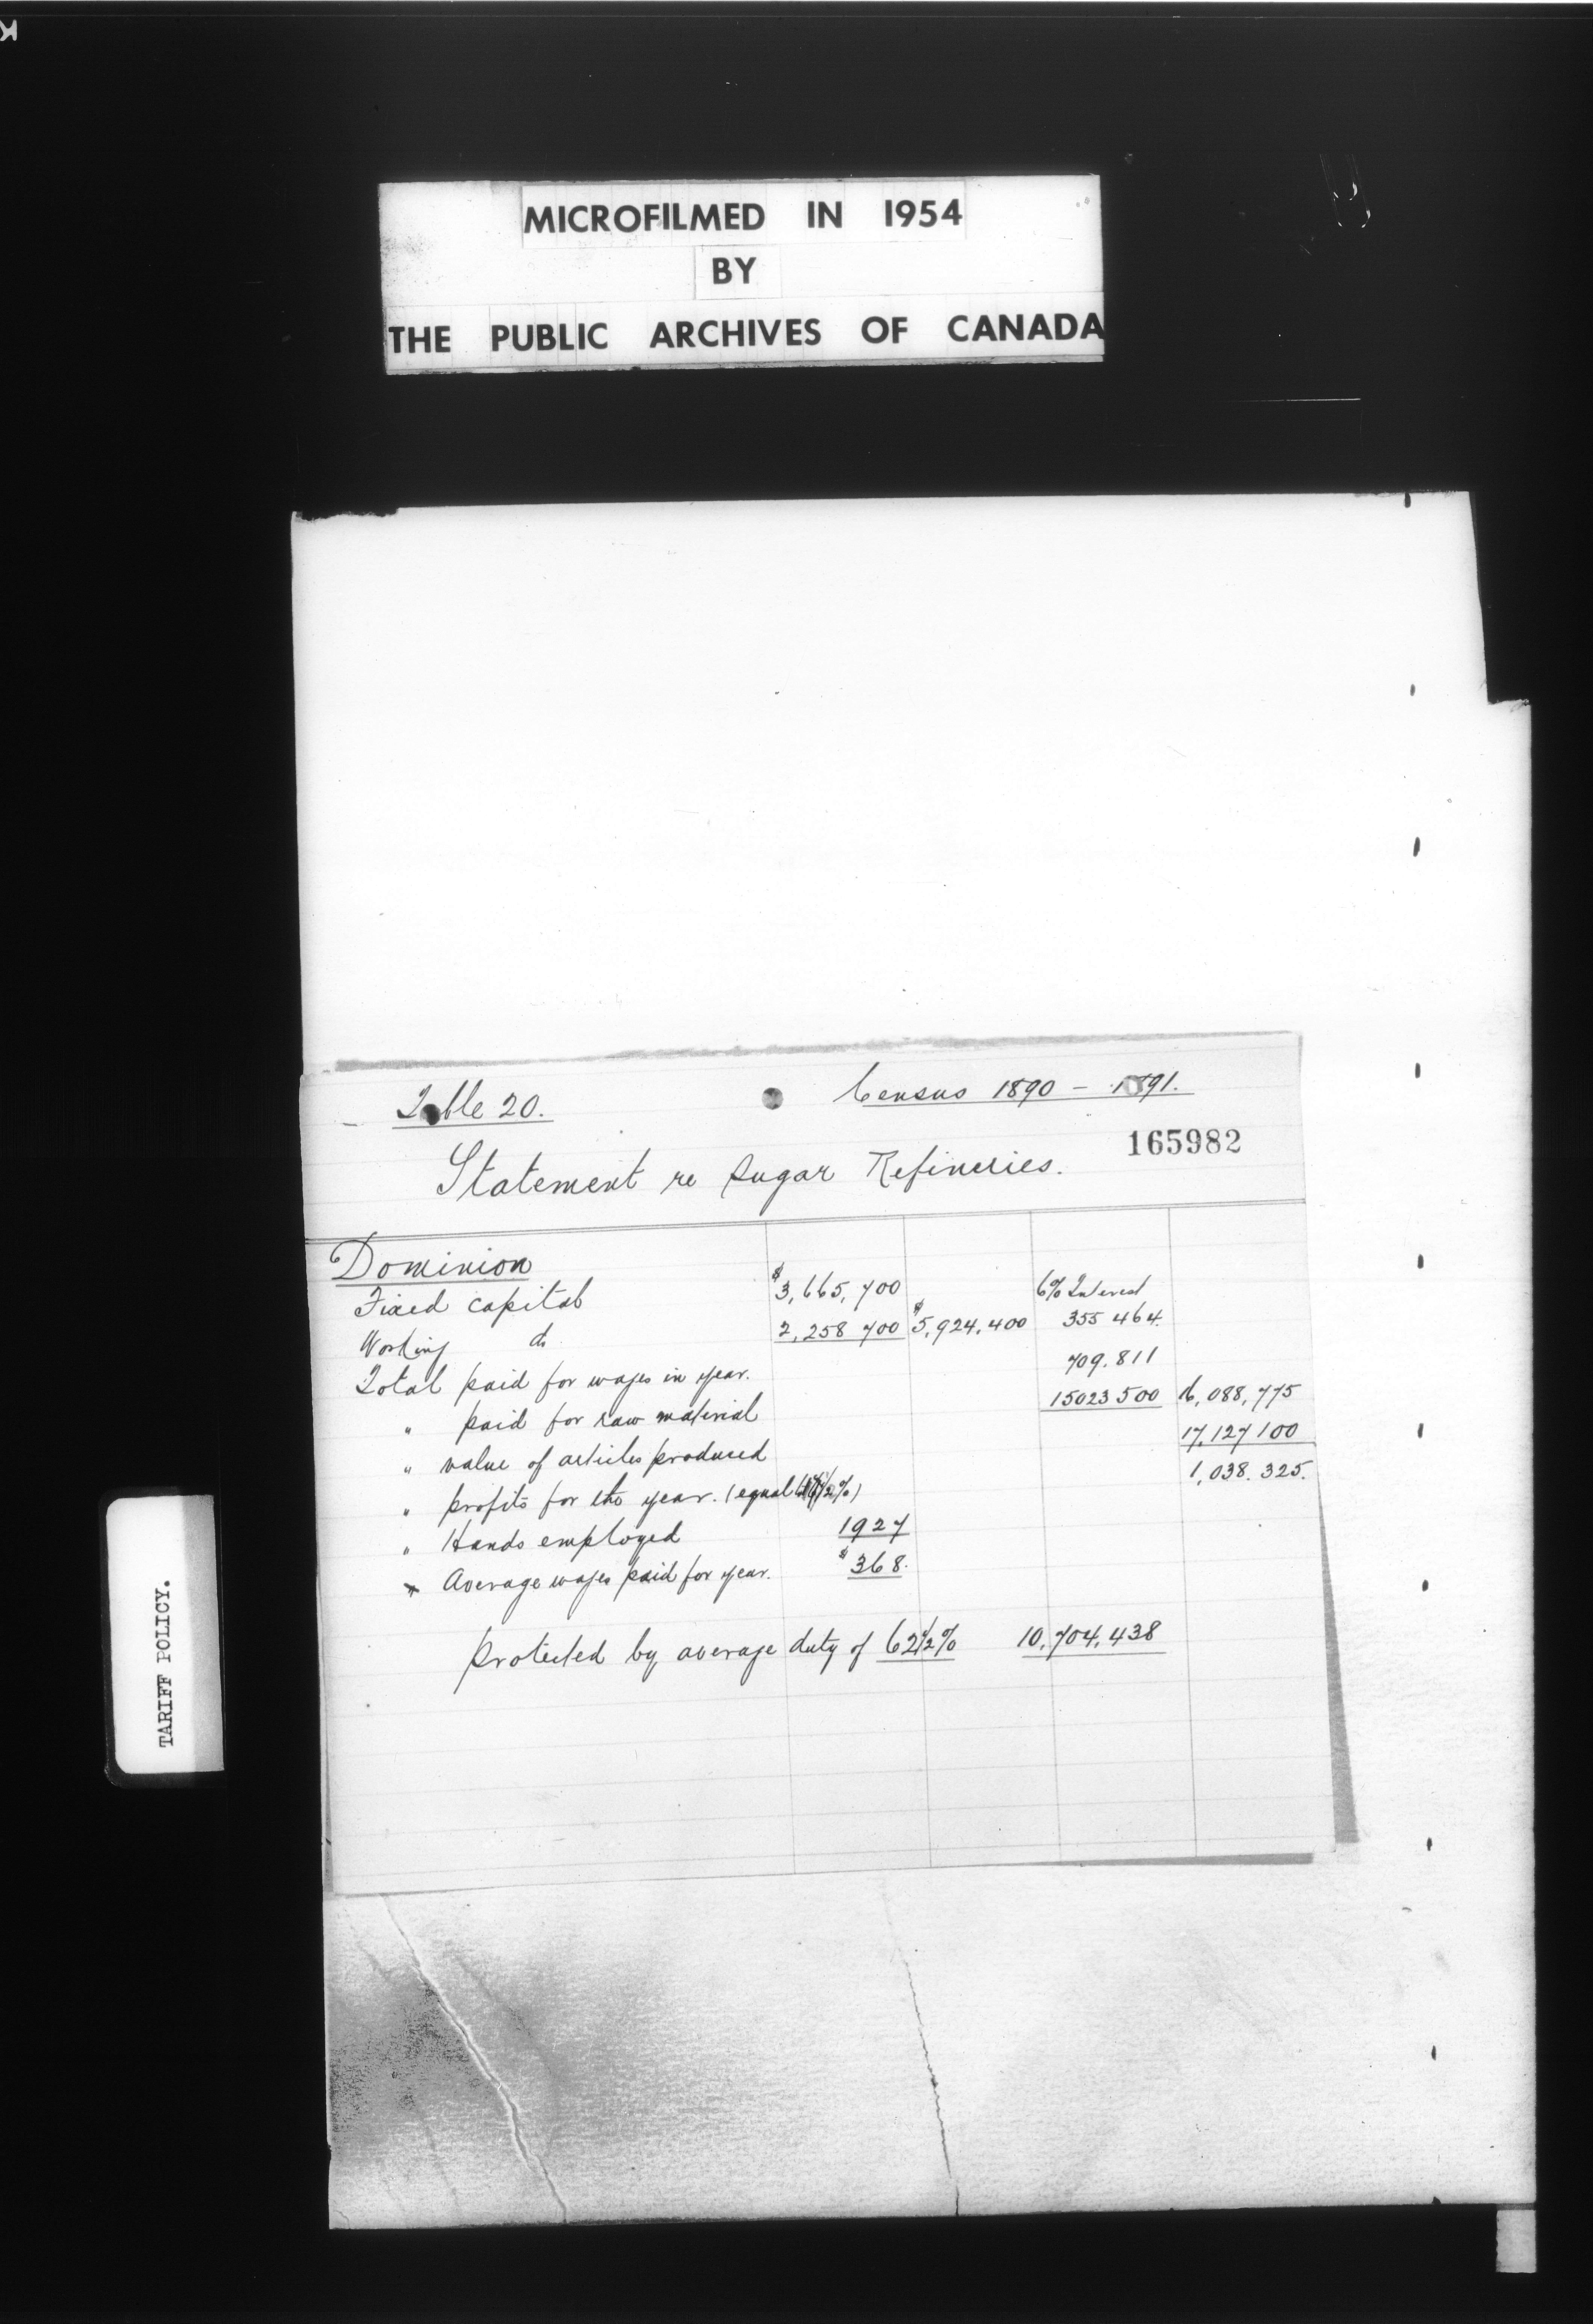 MICROFILMED IN 1954
BY
THE PUBLIC ARCHIVES OF CANADA
Table 20. Census 1890 - 1891.
165982
Statement re Sugar Refineries.
Dominion
Fixed capital $3,665,700 6% Interest
Working do 2,258 700 $5,924,400 355 464.
Total paid for wages in year. 709.811
" paid for raw material 15023500 16,088,775
" value of articles produced 17,127 100
" profits for the year. (equal %) 1,038.325.
" Hands employed 1927
" Average wages paid for year. $368.
protected by average duty of 62 1/2% 10,704,438
TARIFF POLICY.